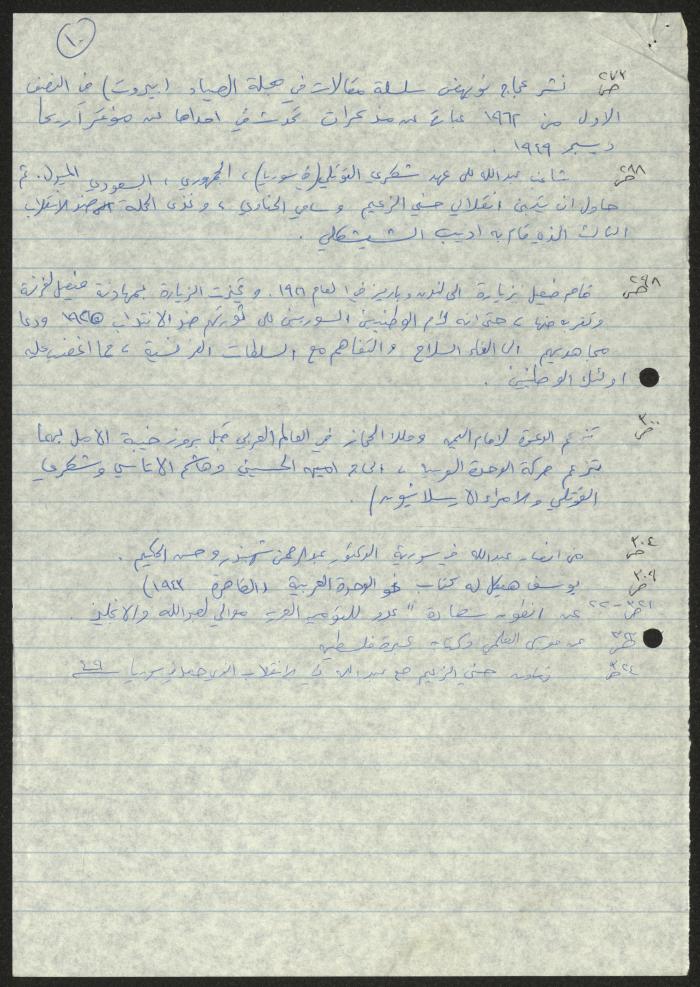 ١٠
ص ٢٧٣ نشر عجاج نويهض سلسلة مقالات في مجلة الصياد (بيروت) في النصف
الاول من ١٩٦٢ عبارة عن مذكرات تحدث في احداها عن مؤتمر اريحا
ديسمبر ١٩٤٩ .
ص ٢٨٨ عبدالله على عهد شكري القوتلي (في سوريا) ، الجمهوري ، السعودي الميول. ثم
حاول ان يتبنى انقلابي حسني الزعيم وسامي الحناوي ، و الحملة ضد الانقلاب
الثالث الذي قام به اديب الشيشكلي .
ص ٢٩٨ قام فيصل بزيارة الى لندن وباريز في العام ١٩٢ . و الزيارة بمهادنة فيصل لفرنسة
منها ، حتى انه لام الوطنيين السوريين على ثورتهم ضد الانتداب ١٩٢٥ ودعا
مجاهديهم الى القاء السلاح والتفاهم مع السلطات الفرنسية ، مما اغضب عليه
اولئك الوطنيين .
ص ٣٠٠ تتزعم الدعوة لامام اليمن وملك الحجاز في العالم العربي قبل بروز خيبة الامل بهما
تتزعم حركة الوحدة ، الحاج امين الحسيني وهاشم الاتاسي وشكري
القوتلي والامراء الارسلانيون) .
ص ٣٠٤ من انصار عبدالله في سورية الدكتور عبدالرحمن شهبندر وحسن الحكيم .
ص ٣٠٩ يوسف هيكل له كتاب نحو الوحدة العربية (القاهرة ١٩٤٣)
ص ٣٢١-٢٢ عن انطون سعادة "عدو للقومية العربية موالي لعبدالله والانجليز .
عن موسى العلمي وكتابه عبرة فلسطين
ص ٣٢٤ تعاون حسني الزعيم مع عبدالله في الانقلاب الذي في سوريا ٤٩